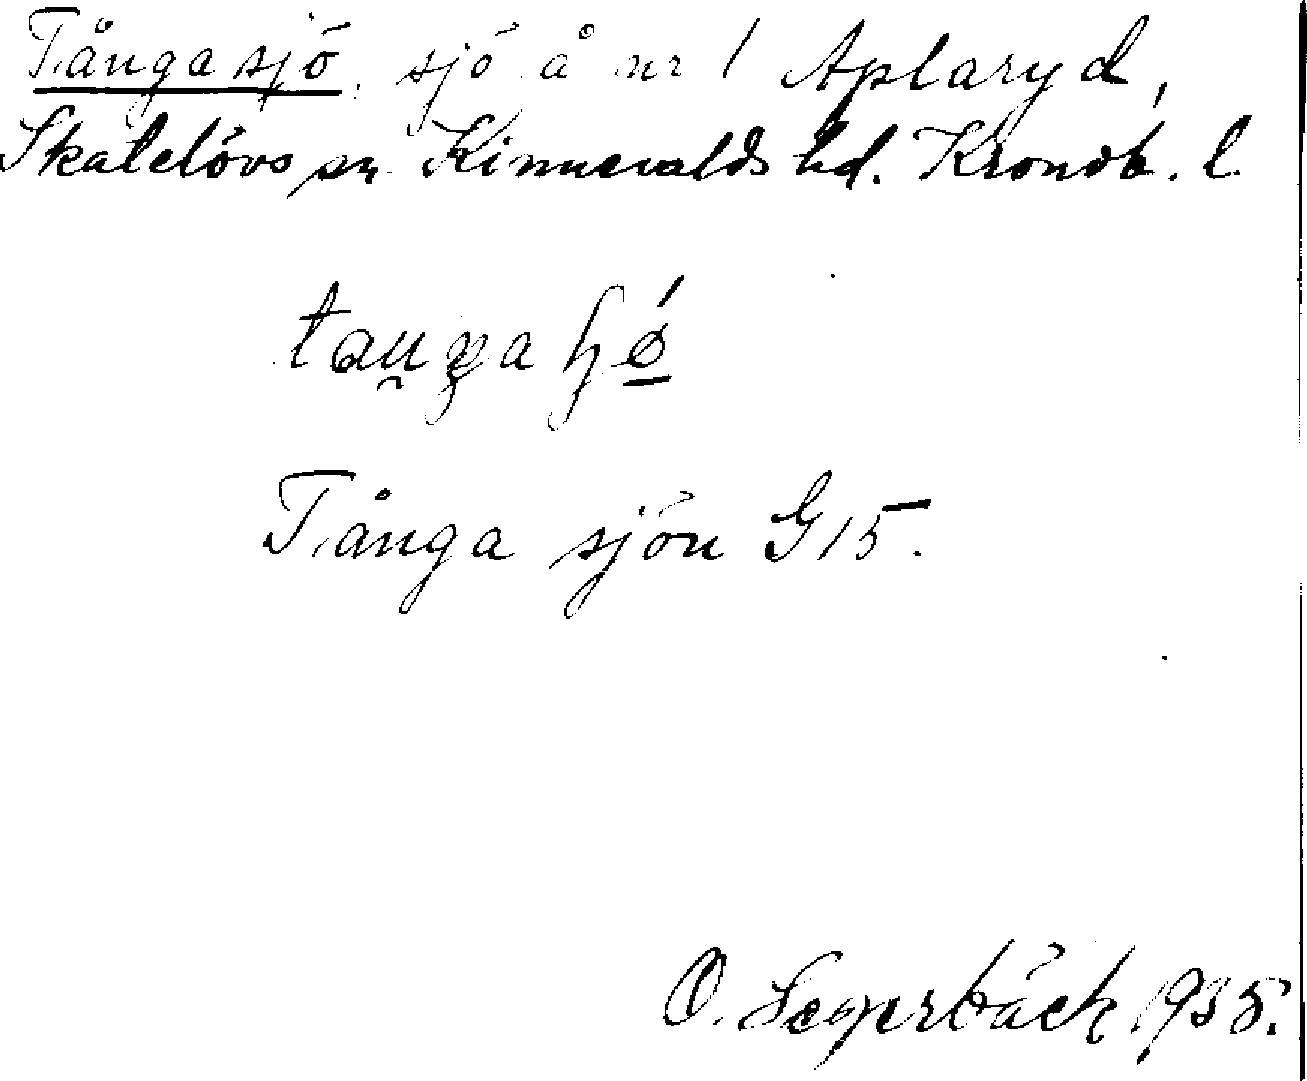 Tångasjö, sjö å nr 1 Aplaryd,
Skatelövs sn. Kinnevalds hd. Kronob. l.
Tånga sjön G15.
O. Segerbäck 1935.